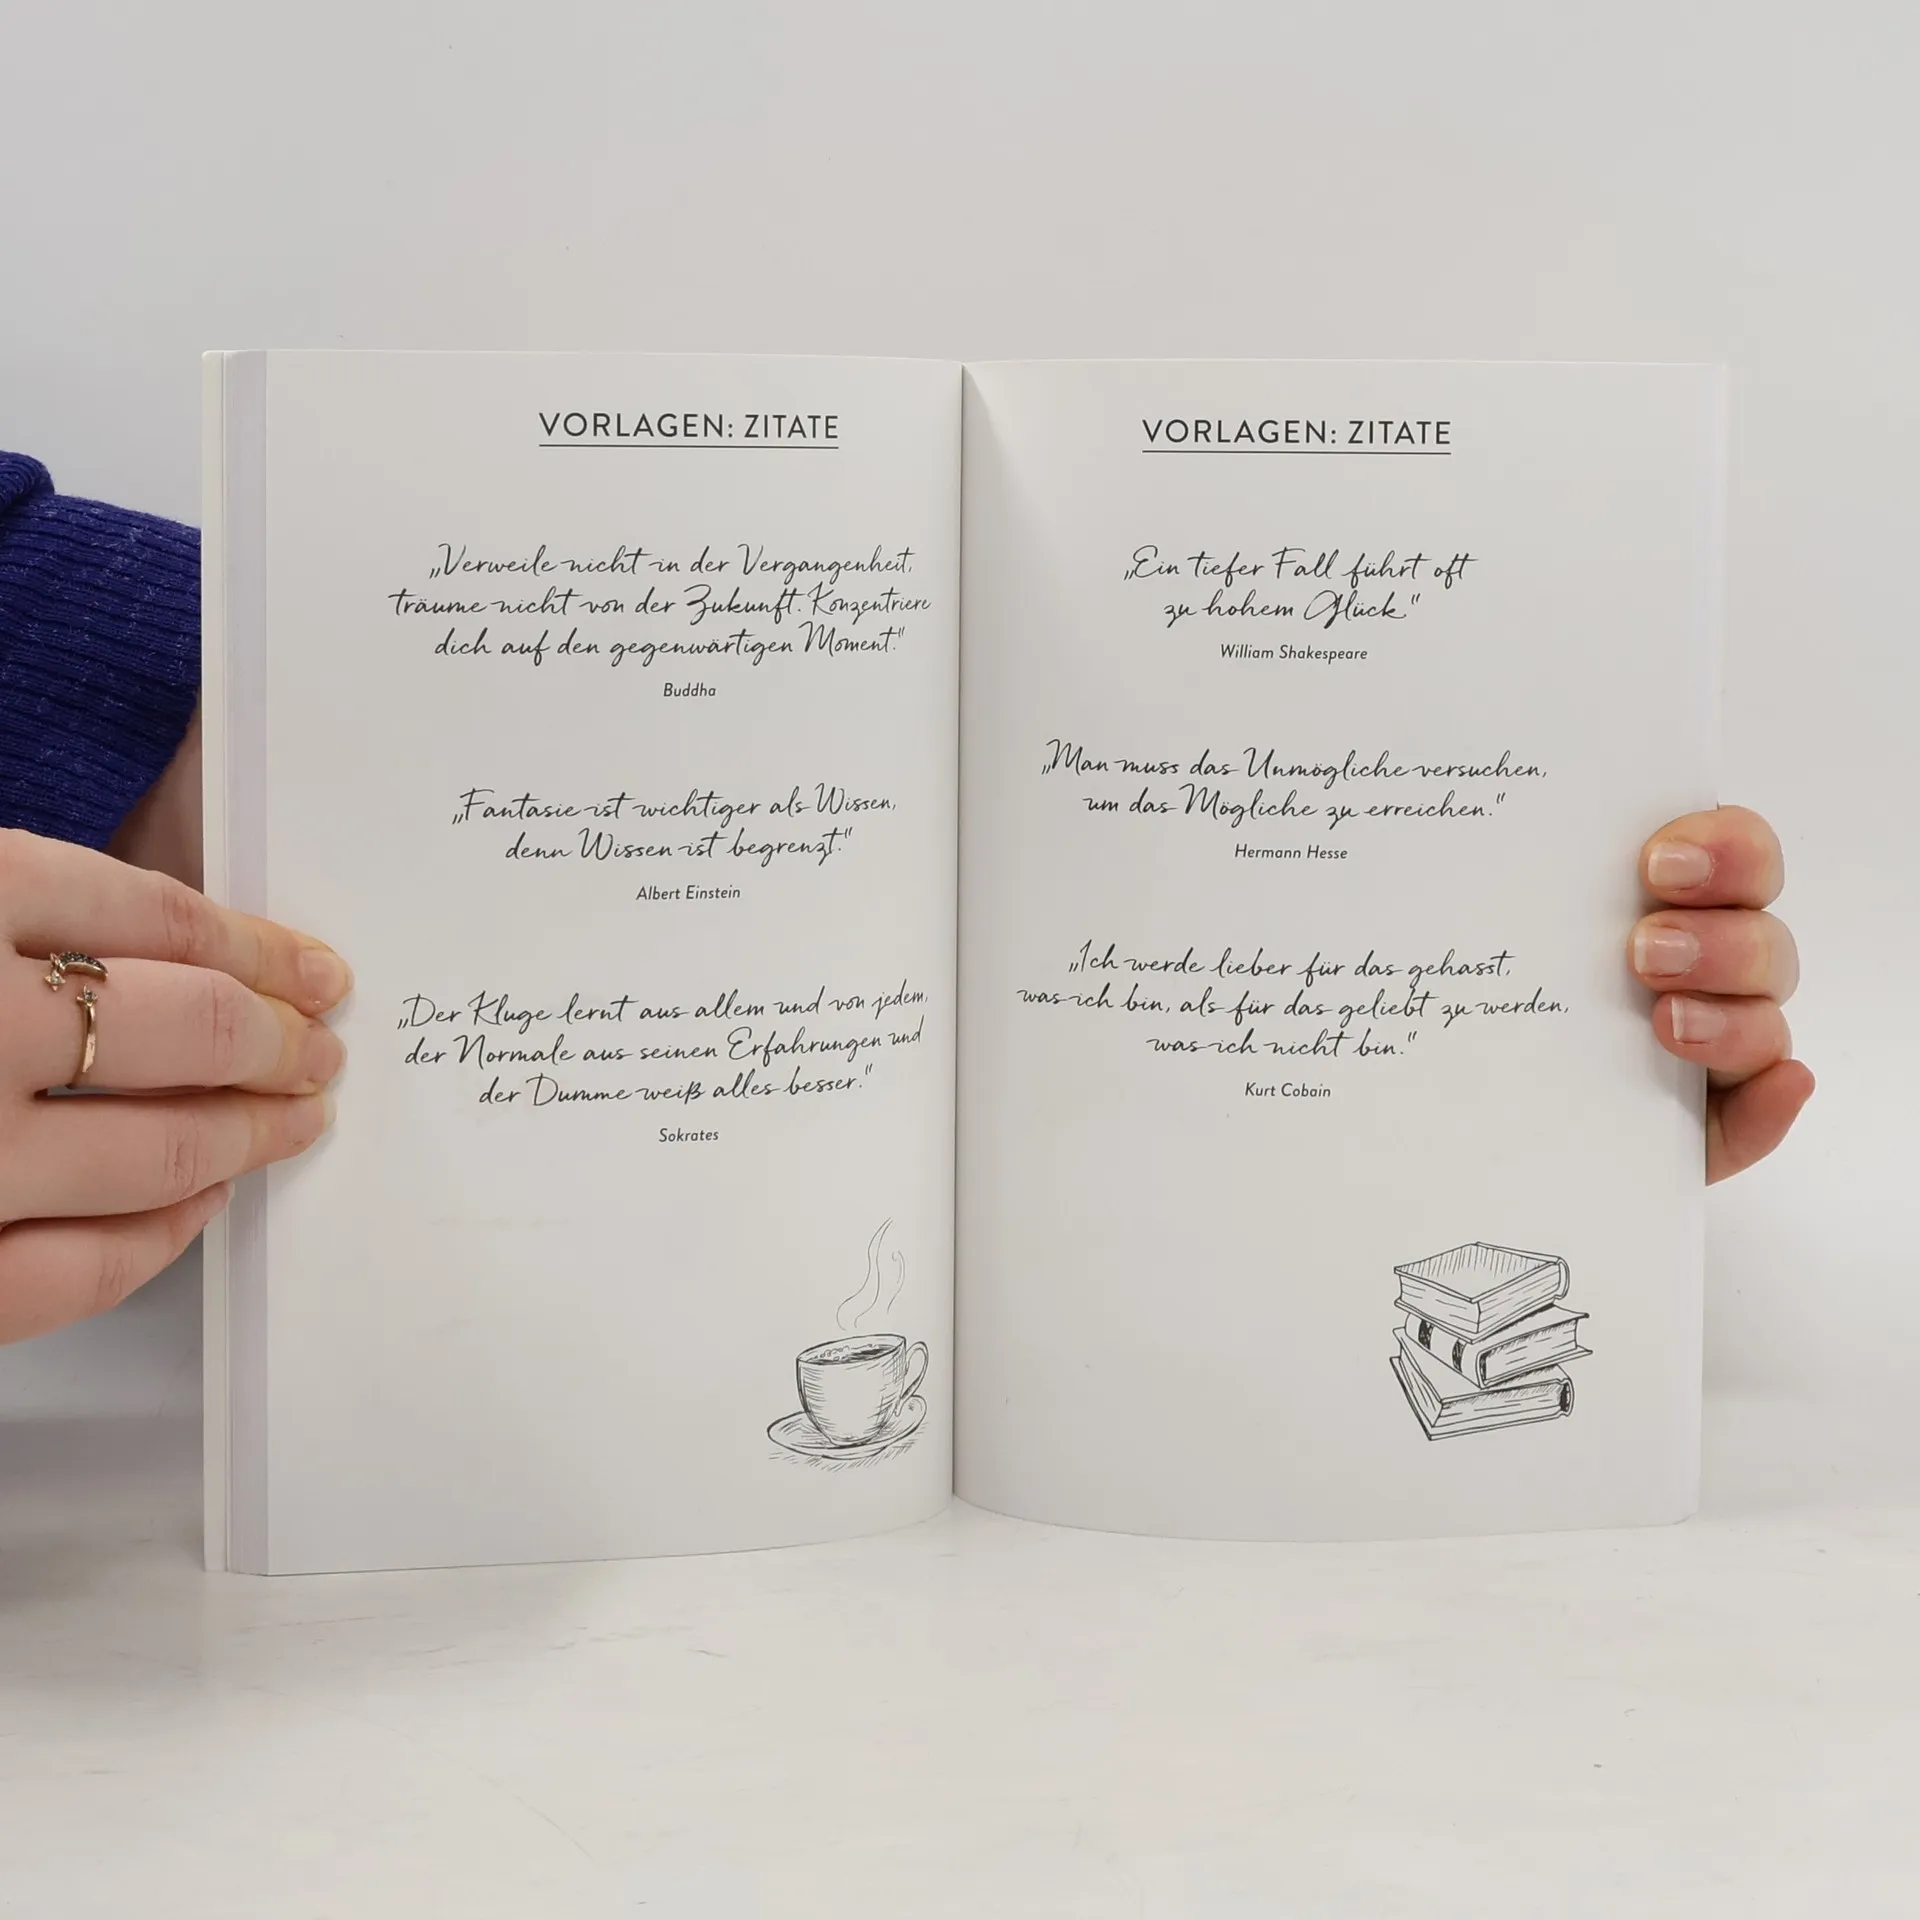 VORLAGEN: ZITATE
„Verweile nicht in der Vergangenheit,
träume nicht von der Zukunft. Konzentriere
dich auf den gegenwärtigen Moment."
Buddha
„Fantasie ist wichtiger als Wissen,
denn Wissen ist begrenzt."
Albert Einstein
„Der Kluge lernt aus allem und von jedem,
der Normale aus seinen Erfahrungen und
der Dumme weiß alles besser."
Sokrates
VORLAGEN: ZITATE
„Ein tiefer Fall führt oft
zu hohem Glück."
William Shakespeare
„Man muss das Unmögliche versuchen,
um das Mögliche zu erreichen."
Hermann Hesse
„Ich werde lieber für das gehasst,
was ich bin, als für das geliebt zu werden,
was ich nicht bin."
Kurt Cobain